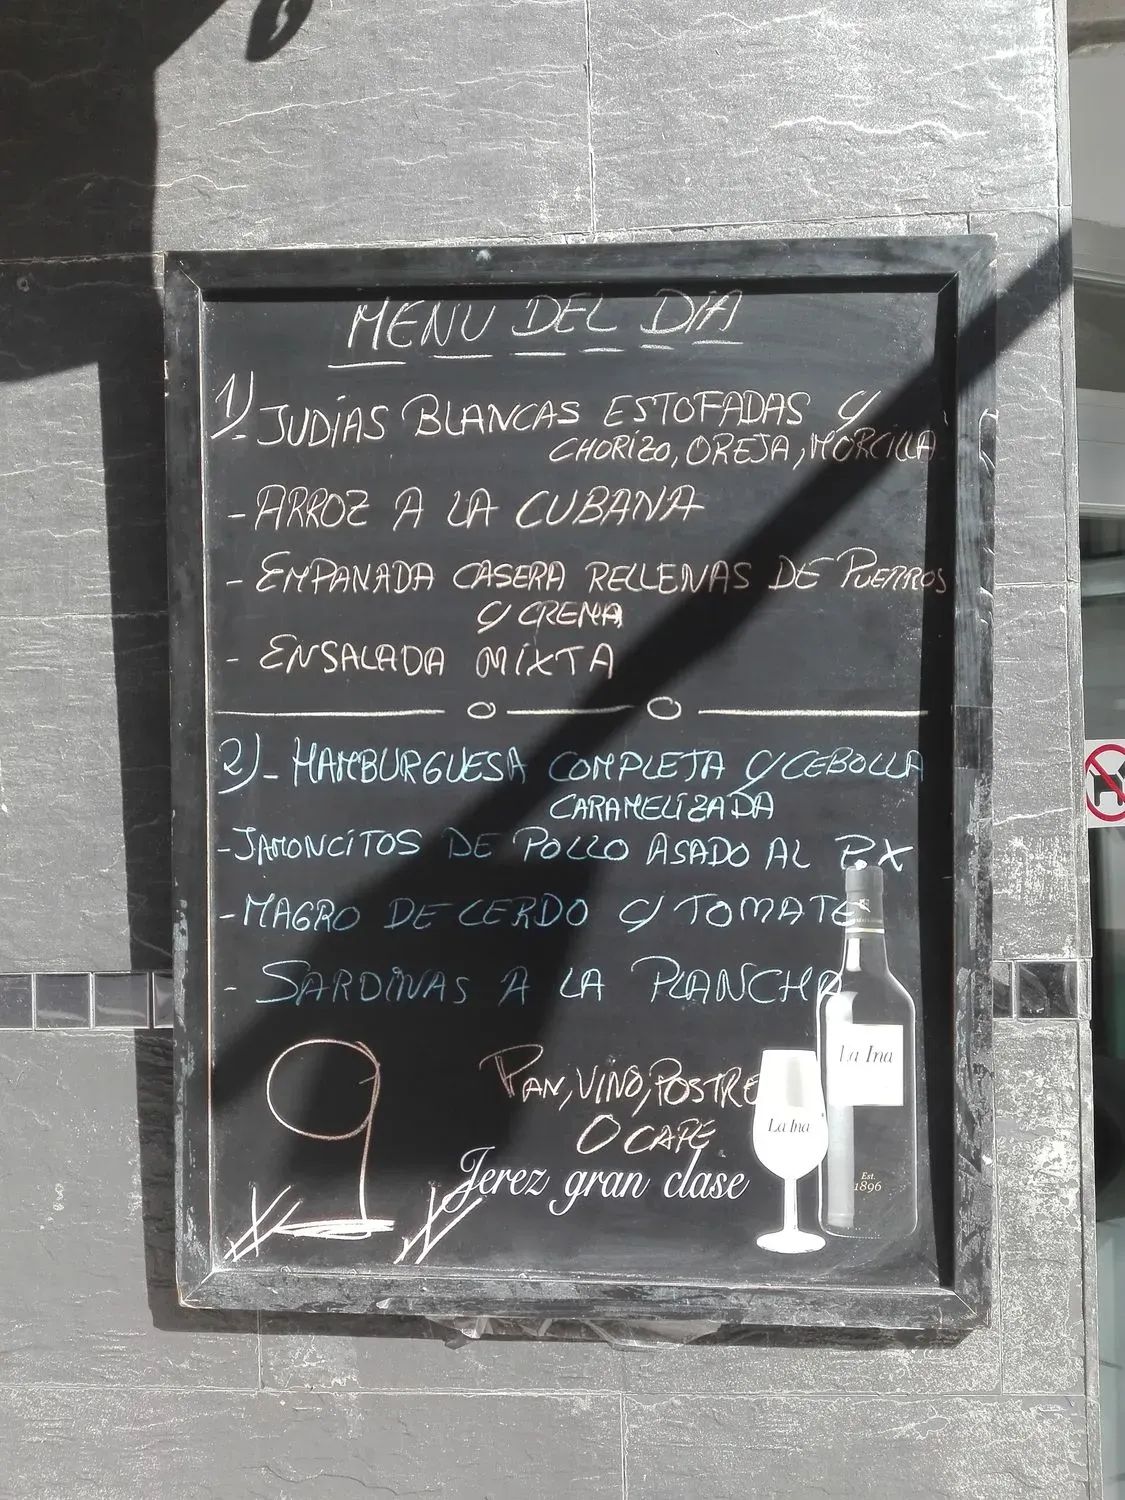 MENU DEL DIA
1)- JUDÍAS BLANCAS ESTOFADAS C/
CHORIZO, OREJA, MORCILLA
- ARROZ A LA CUBANA
- EMPANADA CASERA RELLENAS DE PUERROS
Y CREMA
- ENSALADA MIXTA
2)- HAMBURGUESA COMPLETA C/CEBOLLA
CARAMELIZADA
- JAMONCITOS DE POLLO ASADO AL PX
- MAGRO DE CERDO C/ TOMATE
- SARDINAS A LA PLANCHA
9
PAN, VINO, POSTRE
O CAFE
La Ina
La Ina
Jerez gran clase
Est.
1896